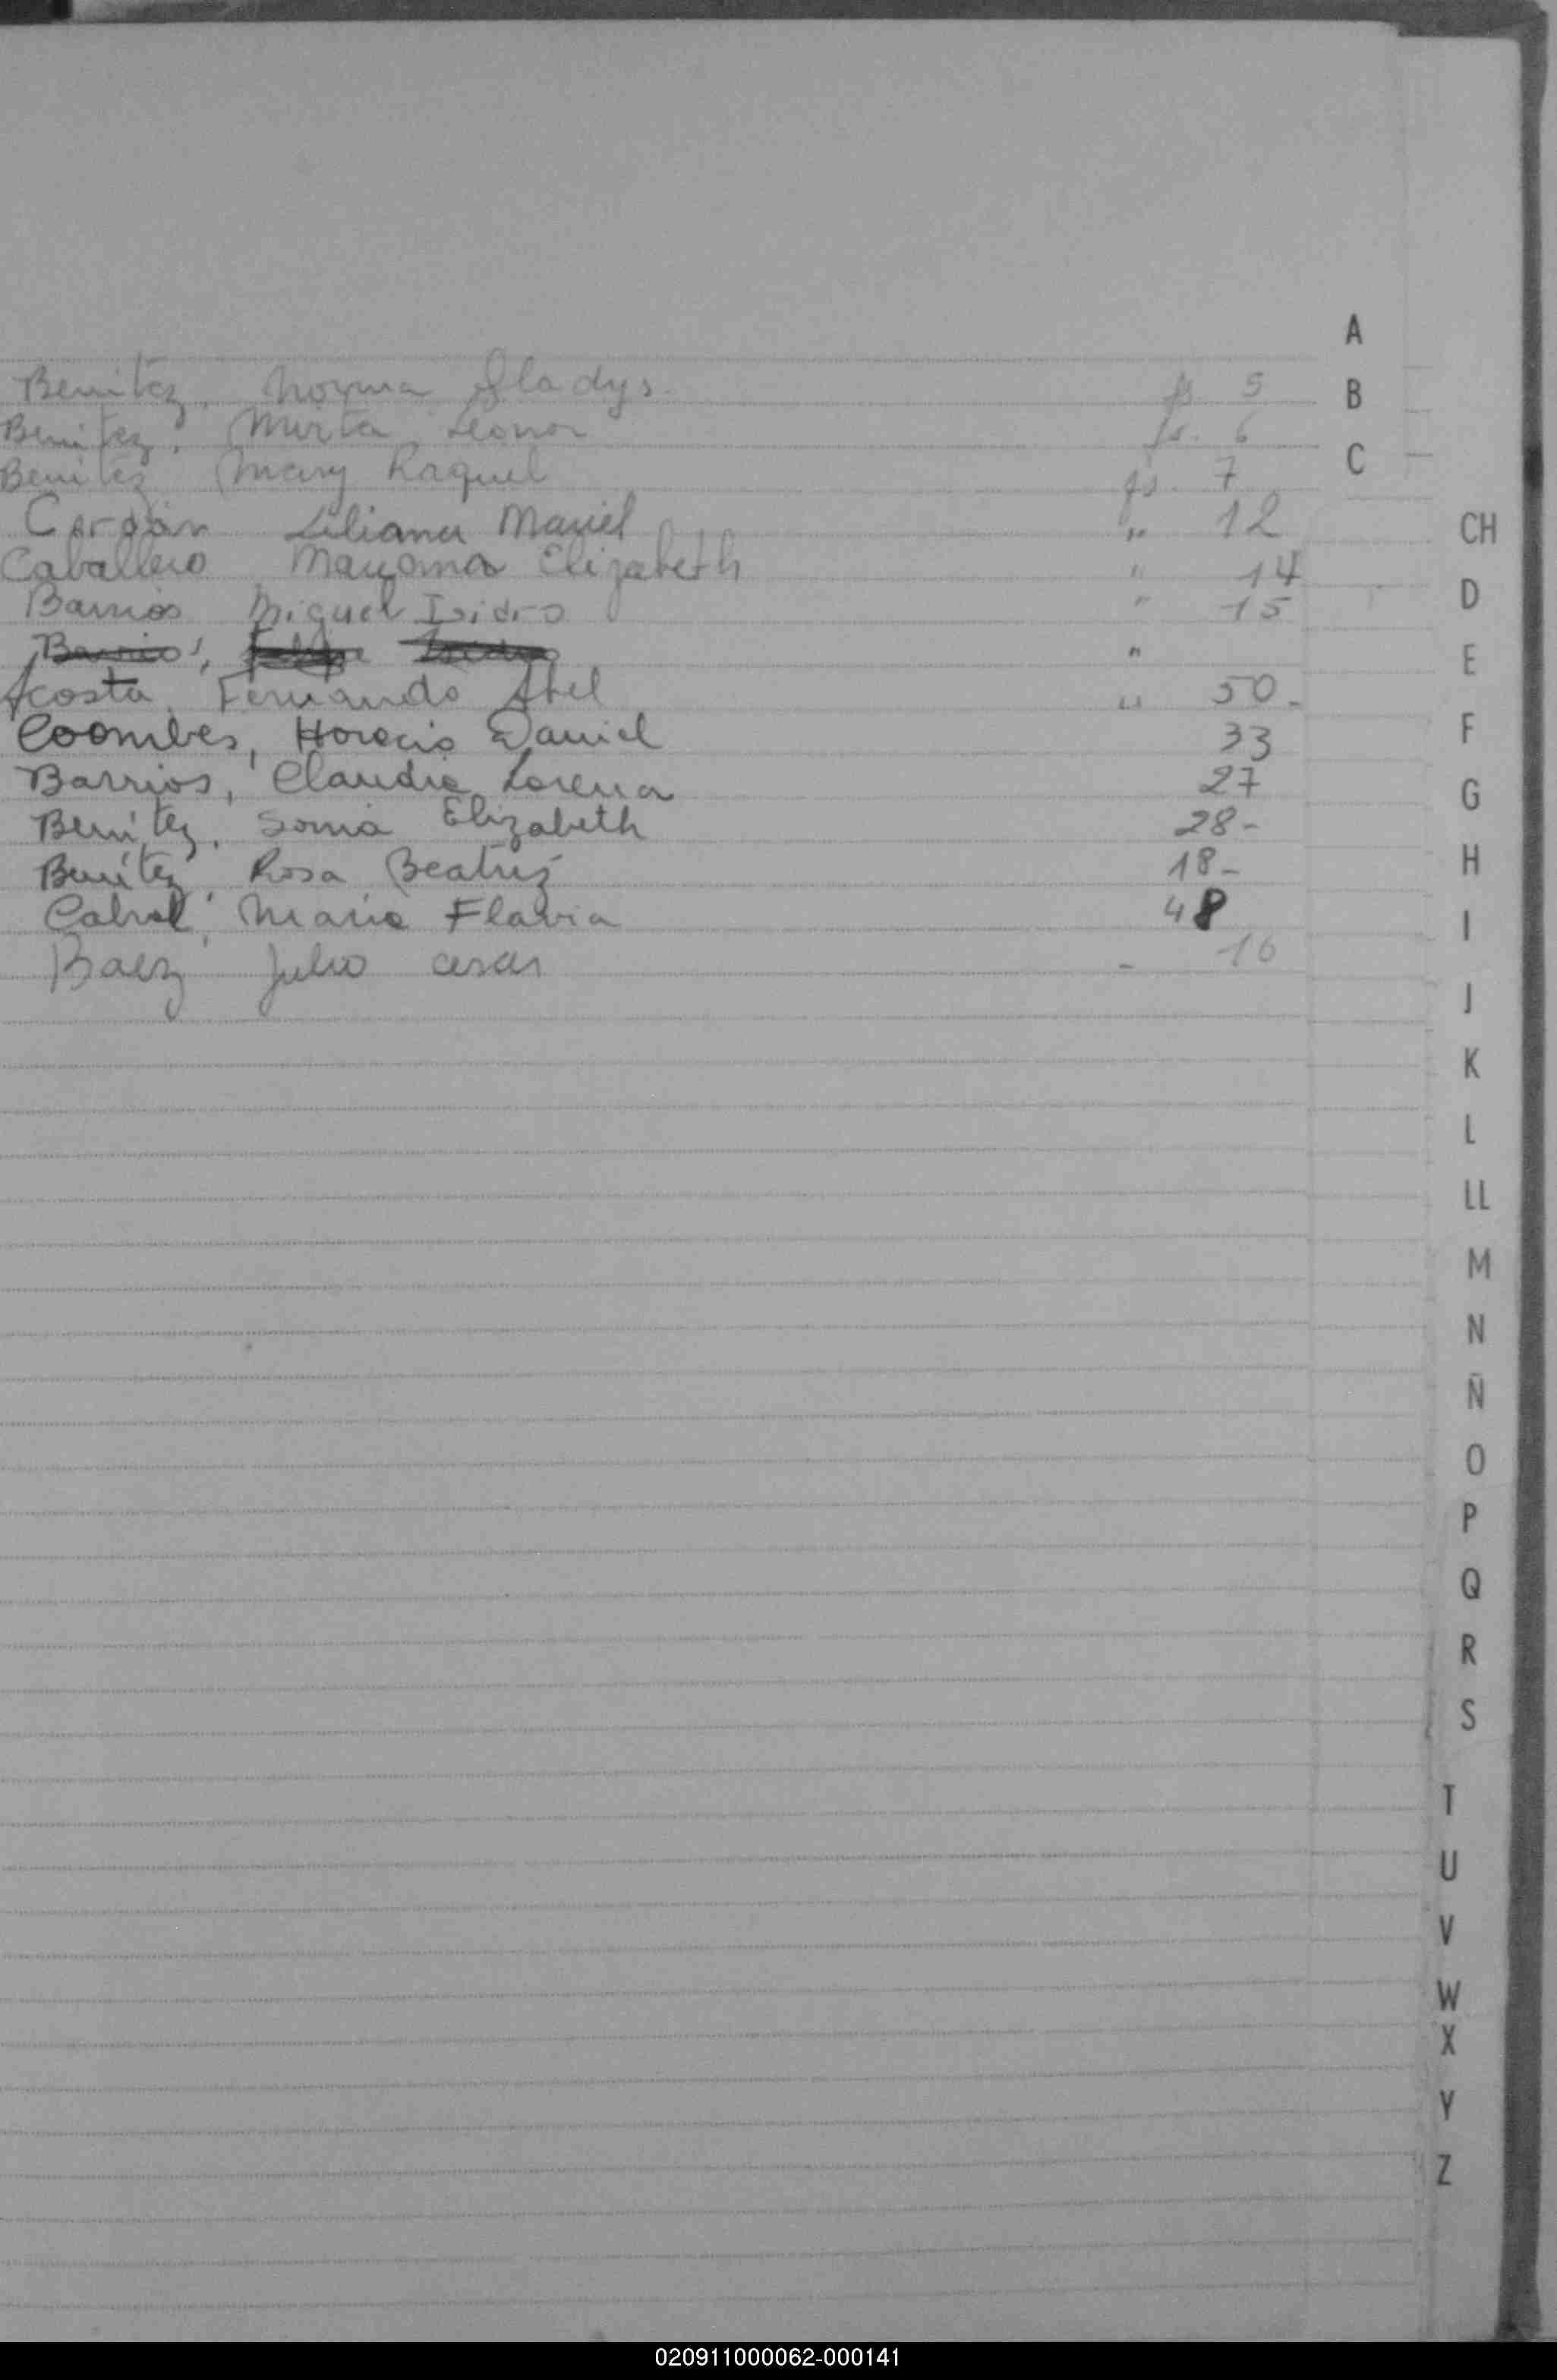 Benitez, Norma Gladys. fs 5
Benitez, Mirta Leonor fs. 6
Benitez Mary Raquel fs. 7
Cardán Liliana Mariel " 12
Caballero Elizabeth " 14
Barrios Miguel Isidro " 15
Barrios, Isidro "
Acosta, Fernando Abel " 50-
Coombes, Horacio Daniel 33
Barrios, Claudia Lorena 27
Benitez, Sonia Elizabeth 28-
Benítez, Rosa Beatriz 18-
Cabral, Maria Flavia 48
Baez Julio cesar - 16
A
B
C
CH
D
E
F
G
H
I
J
K
L
LL
M
N
Ñ
O
P
Q
R
S
T
U
V
W
X
Y
Z
020911000062-000141